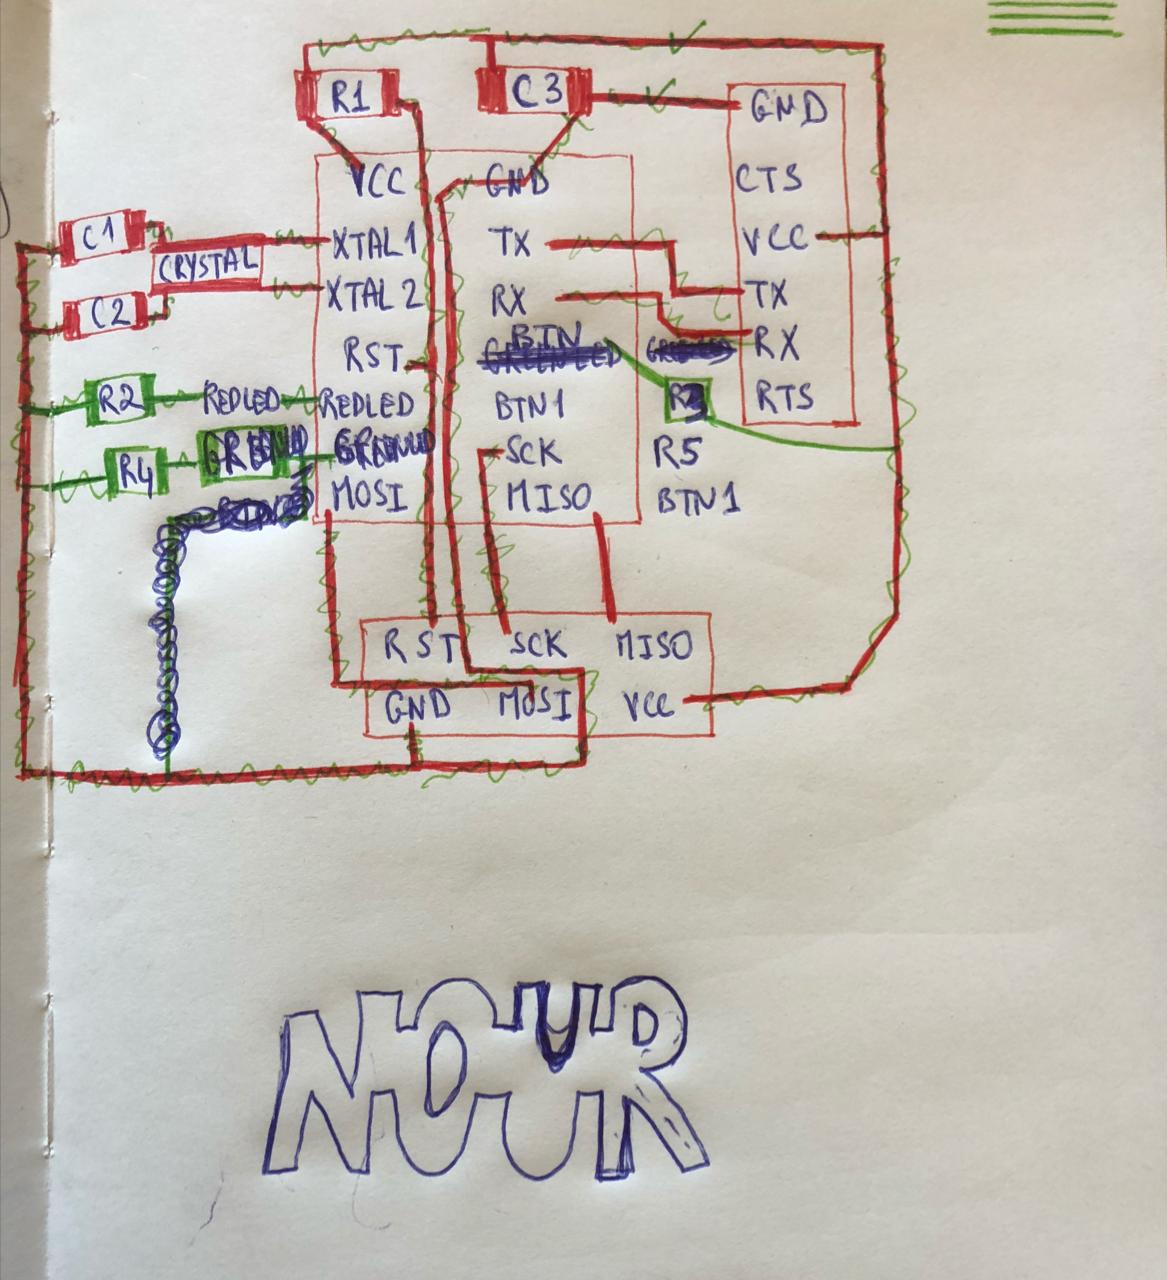 R1 C3 GND
VCC GND CTS
C1 XTAL1 TX VCC
CRYSTAL
C2 XTAL2 RX TX
RST BTN RX
R2 REDLED REDLED BTN1 RTS
R4 SCK R5
MOSI MISO BTN1
RST SCK MISO
GND MOSI VCC
NOUR